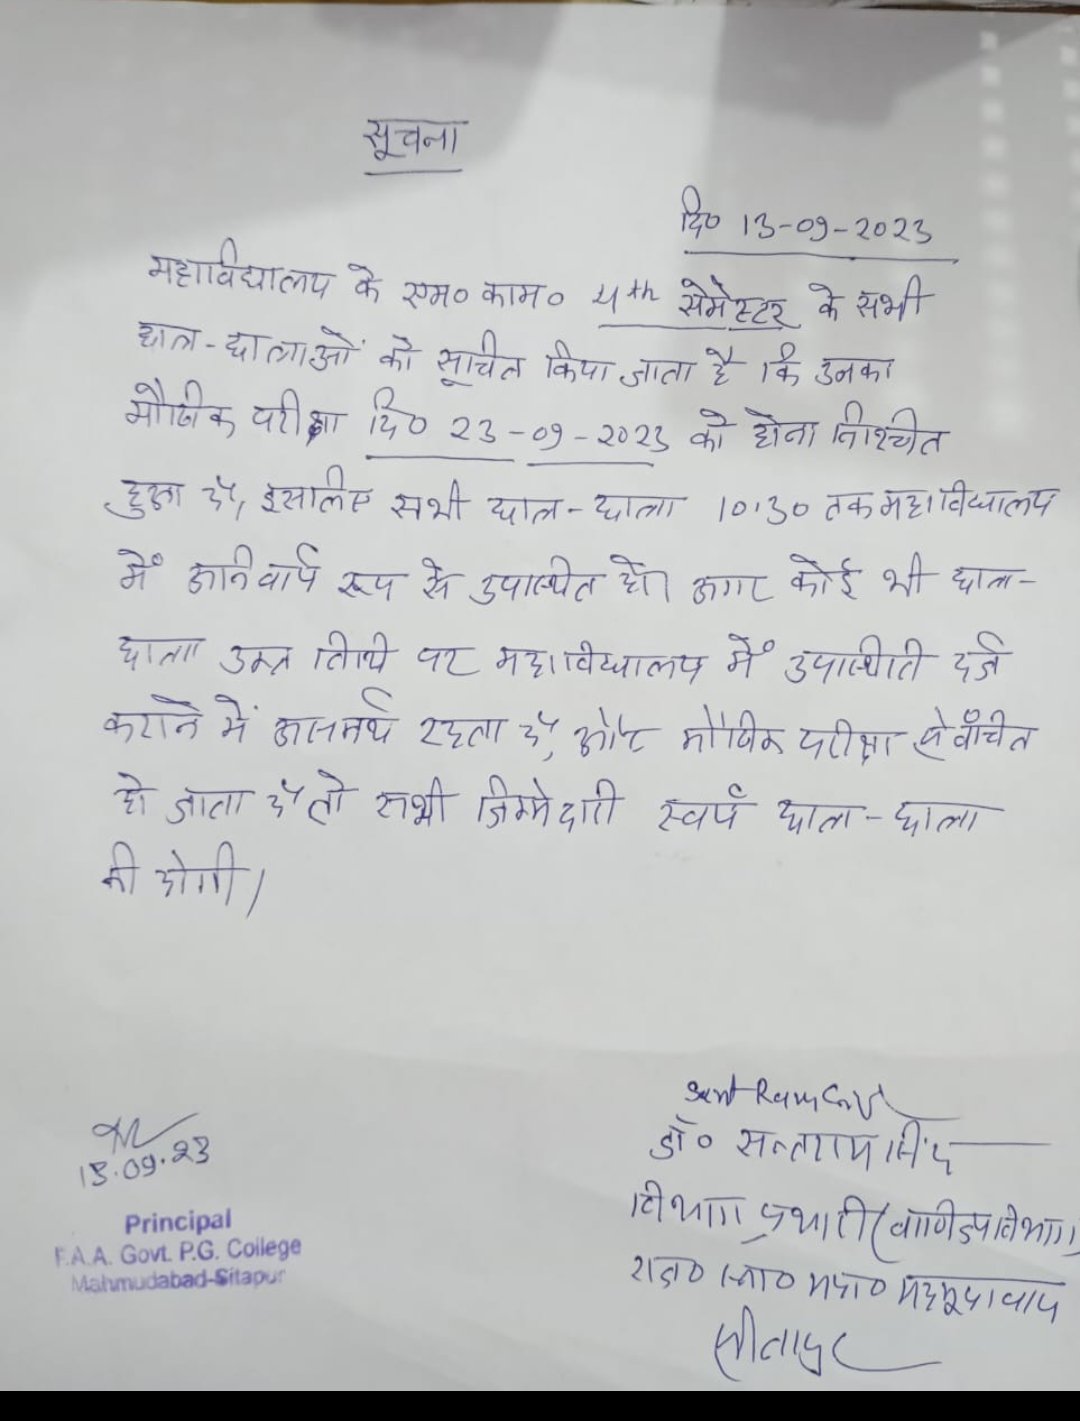 सूचना
दि० 13-09-2023
महाविद्यालय के एम० काम० 4th सेमेस्टर के सभी
छात्र-छात्राओं को सूचित किया जाता है कि उनका
मौखिक परीक्षा दि० 23-09-2023 को होना निश्चित
हुआ है, इसलिए सभी छात्र-छात्रा 10:30 तक महाविद्यालय
में अनिवार्य रूप से उपस्थित हो। अगर कोई भी छात्र-
छात्रा उक्त तिथि पर महाविद्यालय में उपस्थिती दर्ज
कराने में असमर्थ रहता है, और मौखिक परीक्षा से वंचित
हो जाता है तो सभी जिम्मेदारी स्वयं छात्र-छात्रा
की होगी।
Sant Ram
डॉ० सन्तराम सिंह
विभाग प्रभारी (वाणिज्य विभाग)
राज० स्ना० महा० महमूदाबाद
सीतापुर
13.09.23
Principal
F.A.A. Govt. P.G. College
Mahmudabad-Sitapur